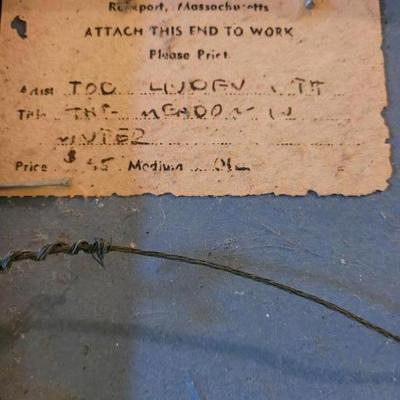 Rockport, Massachusetts
ATTACH THIS END TO WORK
Please Print
Artist TOD LINDENMUTH
Title THE MEADOW IN
WINTER
Price $45 Medium OIL